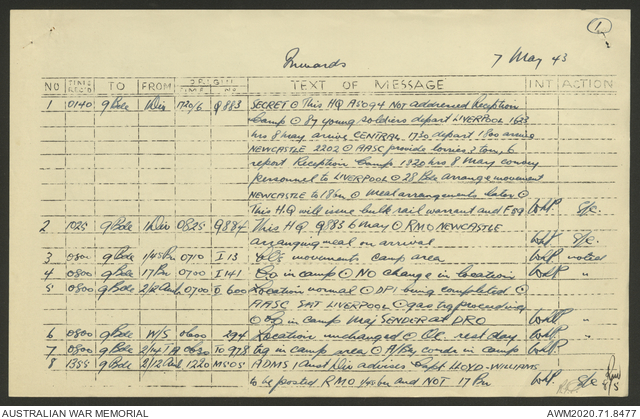 1
Inwards 7 May 43
NO TIME REC'D TO FROM ORIGIN TIME NO TEXT OF MESSAGE INT ACTION
1 0140 9 Bde 1 Div Q883 SECRET ⊙ This HQ A5094 NOT addressed Reception
Camp ⊙ 87 young soldiers depart LIVERPOOL 1623
hrs 8 May arrive CENTRAL 1730 depart 1800 arrive
NEWCASTLE 2202 ⊙ AASC provide lorries 3 ton, 6
report Reception Camp 1320 hrs 8 May convey
personnel to LIVERPOOL ⊙ 28 Bde arrange movement
NEWCASTLE to 18 Bn ⊙ Meal arrangements later ⊙
This HQ will issue bulk rail warrant and
2 1025 9 Bde 1 Div 0825 Q884 This HQ Q883 6 May ⊙ RMO NEWCASTLE
arranging meal on arrival
3 0801 9 Bde 0710 I 13 movements camp area noted
4 0800 9 Bde 17 Bn 0700 I 141 in camp ⊙ NO change in location "
5 0800 9 Bde 0700 D 600 Location normal ⊙ DP1 being completed ⊙
AASC SMT LIVERPOOL ⊙ gas trg proceeding
⊙ in camp Maj SENDER at DRO "
6 0800 9 Bde W/S 0600 294 Location unchanged ⊙ O.C. rest day "
7 0800 9 Bde 0630 in camp area ⊙ in camp "
8 1355 9 Bde 1220 M505 ADMS 1 Aust Div advises Capt LLOYD-WILLIAMS
to be posted RMO and NOT 17 Bn
AUSTRALIAN WAR MEMORIAL AWM2020.71.8477